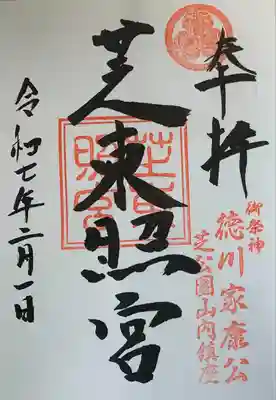 奉拝
御祭神
徳川家康公
芝公園山内鎮座
芝東照宮
令和七年二月一日